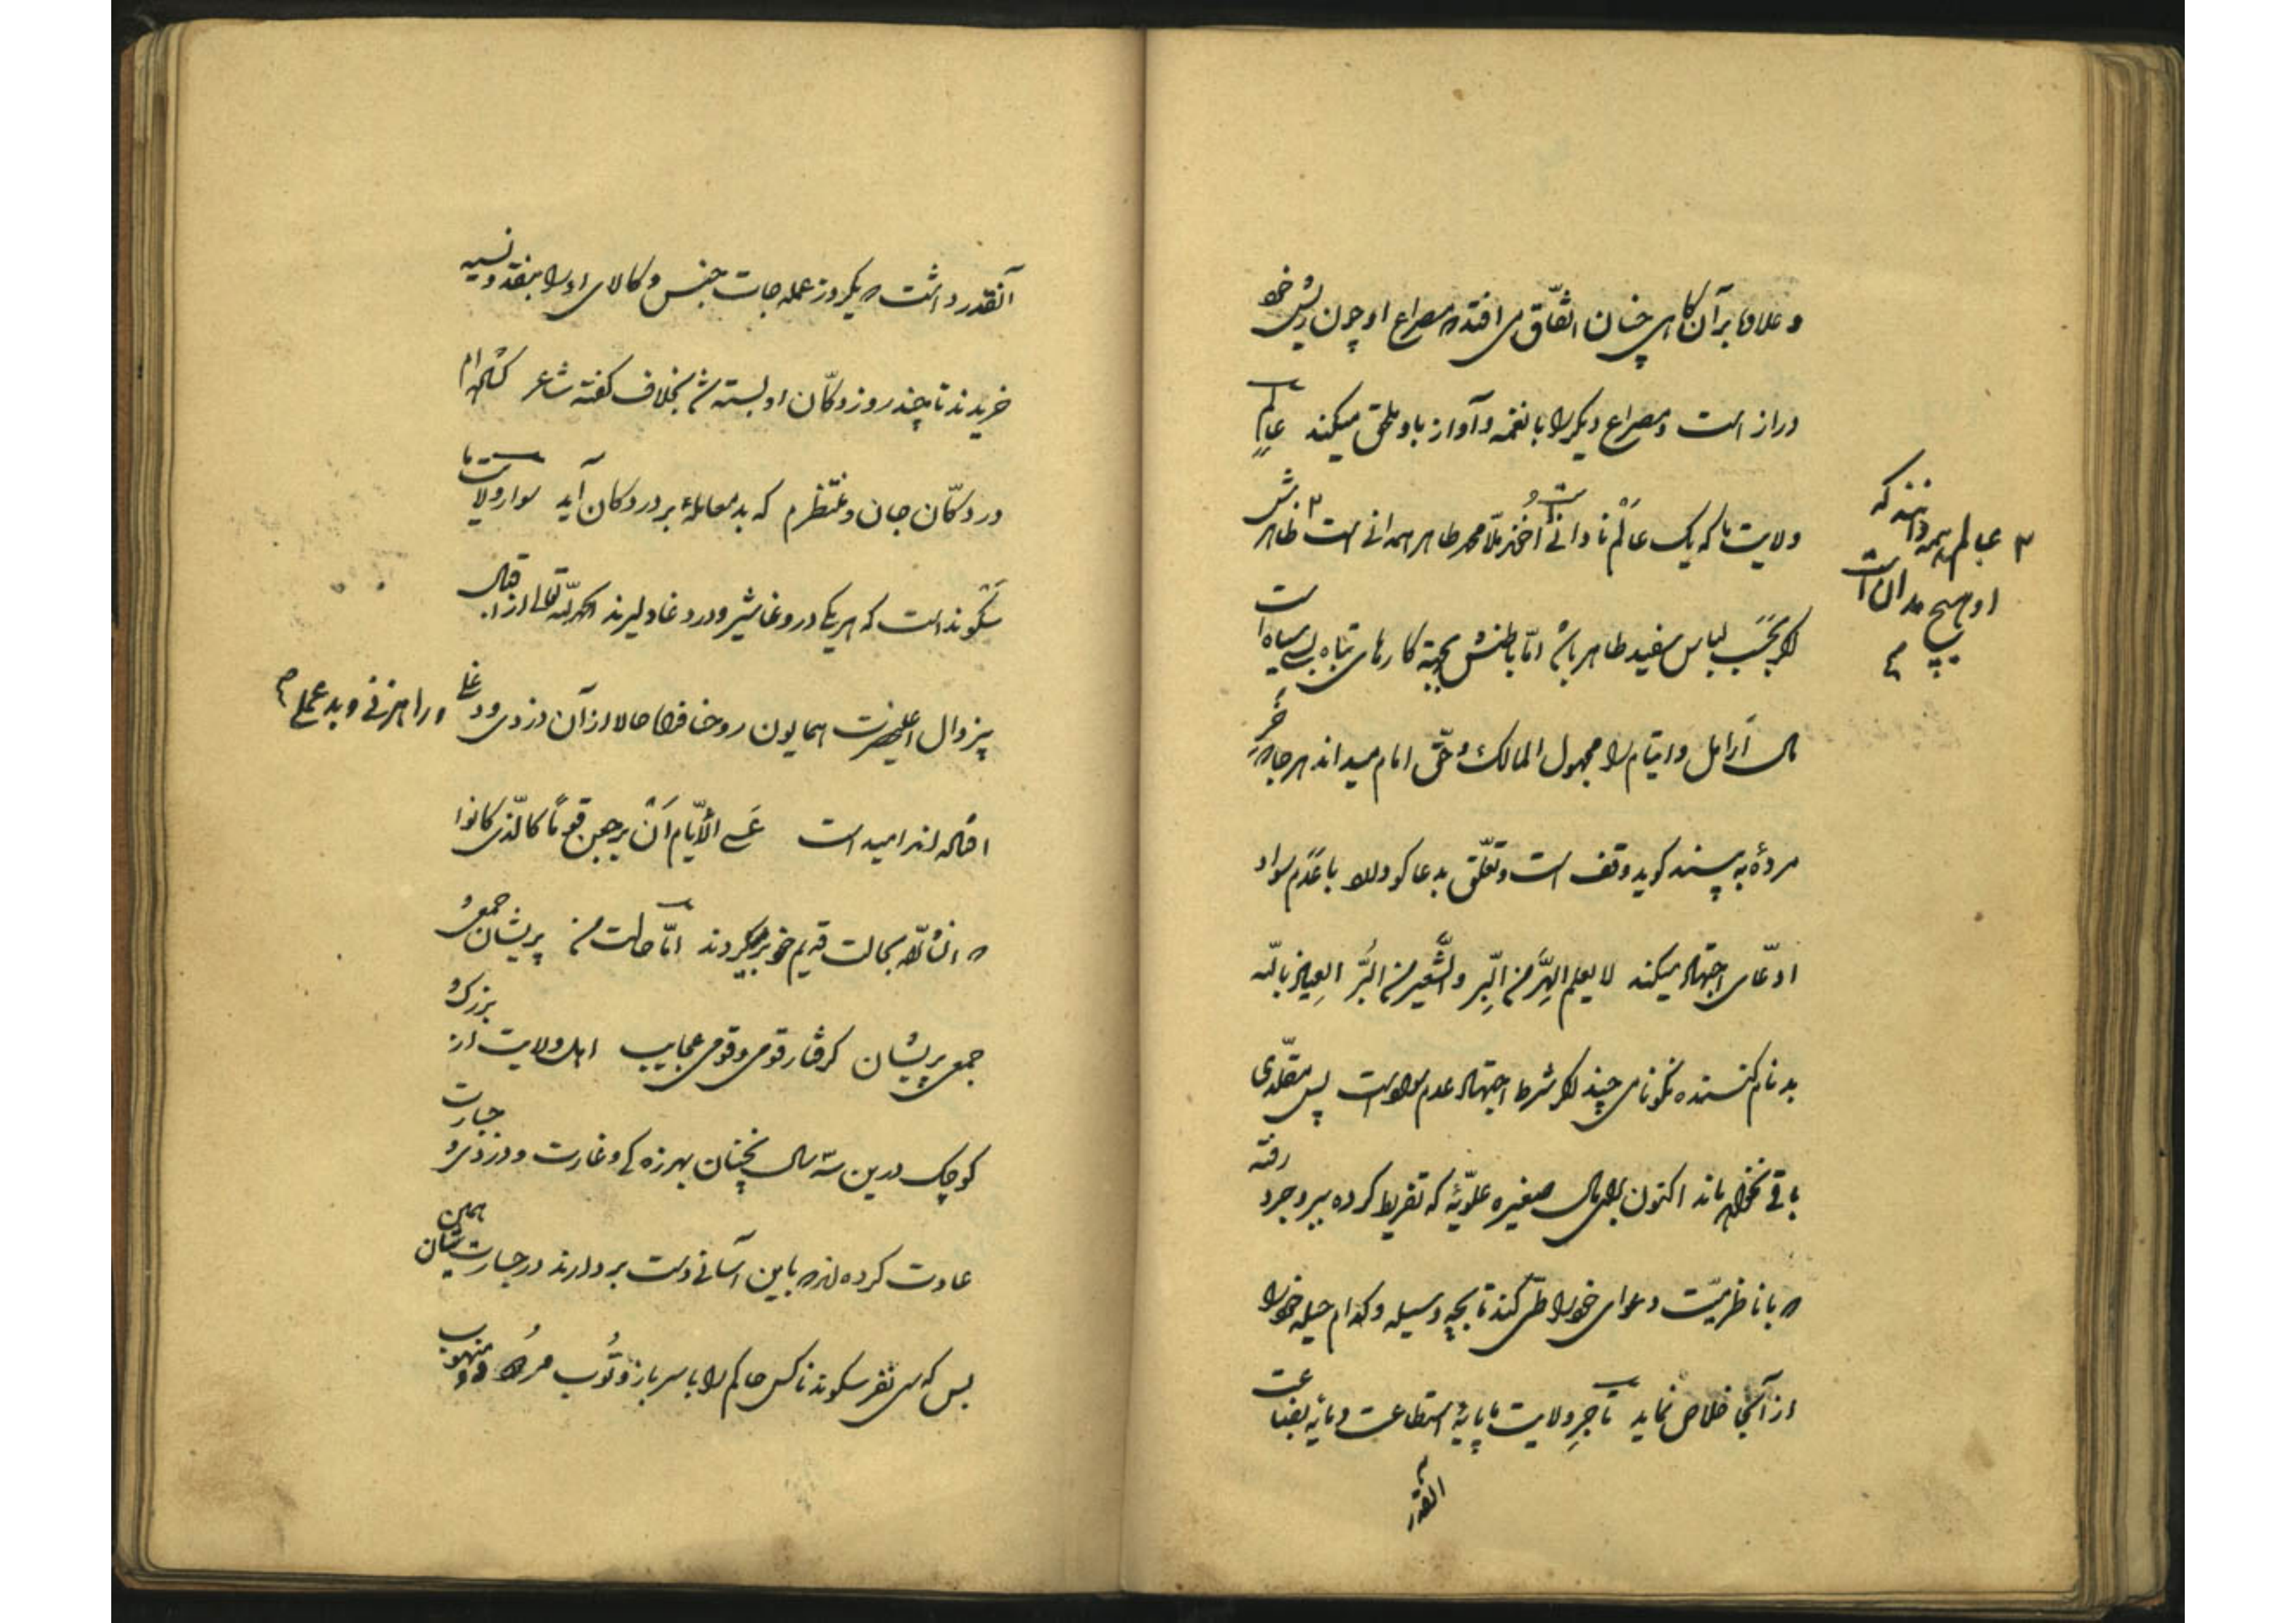 و علاوه بر آن گاهی چنان اتّفاق می افتد که مصراع او چون ریش خود
دراز است و مصراع دیگر را با نغمه و آواز باو ملحق میکند عالم
ولایت ما که یک عالَم نادانی است و آخوند ملّا محمد طاهر همدانی است ۳ ظاهرش
۳ عالم همه دانند که
او هیچ مدان است
اگر بحَسَب لباس سفید طاهر باشد امّا باطنش بجهة کارهای تباه بسی سیاه است
مال اَرامل و ایتام را مجهول المالک و حقّ امام میداند هر جا که خرِ
مردهٔ به پسندد گوید وقف است و تعلّق بدعا گو دارد با عَدَم سواد
ادّعای اجتهاد میکند لا یعلم الهِرَّ من البِرّ و الشَّعیر من البُرّ العیاذ بالله
بدنام کننده نکونامی چند اگر شرط اجتهاد عدم سواد است پس مقلّدی
باقی نخواهد ماند اکنون برای مال صغیره علوّیهٔ که تفریط کرده ببروجرد رفته
که با ناظر میّت دعوای خود را طی کند تا بچه وسیله و کدام حیله خود را
از آنجا خلاص نماید تاجرِ ولایت ما پایهٔ استطاعت و مایهٔ بضاعت
آنقدر
آنقدر داشت که یکروز عمله جات جنس و کالای او را بنقد و نسیه
خریدند تا چند روز دکّان او بسته شد بخلاف گفته شاعر گشاده ام
در دکّان جان و منتظرم که بد معاملهٔ بر در دکان آید سوار ولایت ما
سَکَوند است که هر یک در وغا شیر و در دغا دلیرند الحمد لله تعالی از اقبال
بیزوال اعلیحضرت همایون روحنا فداه حالا از آن دزدی و دغلی و راهزنی و بدعملی
افتاده اند امید است عَسی الأیّام اَنْ یرجعن قوماً کالّذی کانوا
که انشاء الله بحالت قدیم خود برمیگردند امّا حالت من پریشان جمعی و
جمعی پریشان گرفتار قومی و قومی عجایب اهل ولایت از بزرک و
کوچک درین سه سال نچنان بهرزه کی و غارت و دزدی و جسارت
عادت کرده اند که باین آسانی دست بردارند در جسارتشان همین
بس که سی نفر سکوند ناکس حاکم را با سرباز و توُپ منهوب